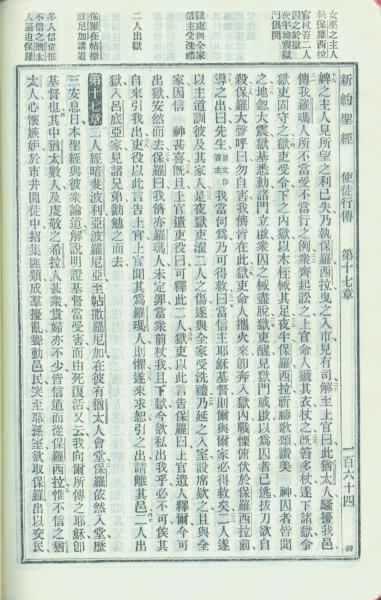 新約聖經 使徒行傳 第十七章 一百六十四
女巫之主人
執保羅西拉
官杖二人
囚之於獄
夜半地震獄
門俱開
獄吏與全家
信主受洗禮
二人出獄
保羅在帖撒
羅尼加講道
多人信從惟
不信之猶太
人逼迫保羅
婢之主人見所望之利已失乃執保羅西拉曳之入市見有司解至上官曰此猶太人騷擾我邑
傳我羅瑪人所不當受不當行之例衆齊起訟之上官命人褫其衣杖之既笞多杖遂下諸獄令
獄吏固守之獄吏受令下之內獄以木桎械其足夜半保羅西拉祈禱歌頌讚美 神囚者皆聞
之地忽大震獄基悉動諸門立啟衆囚之械盡脫獄吏醒見獄門咸啟以爲囚者已逃拔刀欲自
殺保羅大聲呼曰勿自害我儕俱在此獄吏命人攜火來卽奔入獄內戰慄俯伏於保羅西拉前
導之出曰先生原文作主我當何爲乃可得救曰當信主耶穌基督則爾與爾家必得救矣二人遂
以主道訓彼及其家人是夜獄吏濯二人之傷遂與全家受洗禮乃延之入室設席款之且與全
家因信 神甚喜旣旦上官遣吏役曰可釋此二人獄吏以此言告保羅曰上官遣人釋爾今可
出獄安然而去保羅曰我儕亦羅瑪人未定罪當衆前杖我且下獄今欲私出我乎必不可俟其
自來引我出吏役以此言告上官上官聞其爲羅瑪人則懼遂來求恕引之出請離其邑二人出
獄入呂底亞家見諸兄弟勸勉之而去
第十七章 二人經暗斐波利亞波羅尼亞至帖撒羅尼加在彼有猶太人會堂保羅依然入堂歷
三安息日本聖經與彼衆論道解說明證基督當受害而由死復活又云我向爾所傳之耶穌卽
基督也其中猶太數人及虔敬之希拉人甚衆貴婦亦不少皆信道而從保羅西拉惟不信之猶
太人心懷嫉妒於市井閒徒中招集匪類成羣擾亂聳動邑民突至耶孫室欲取保羅出以交民